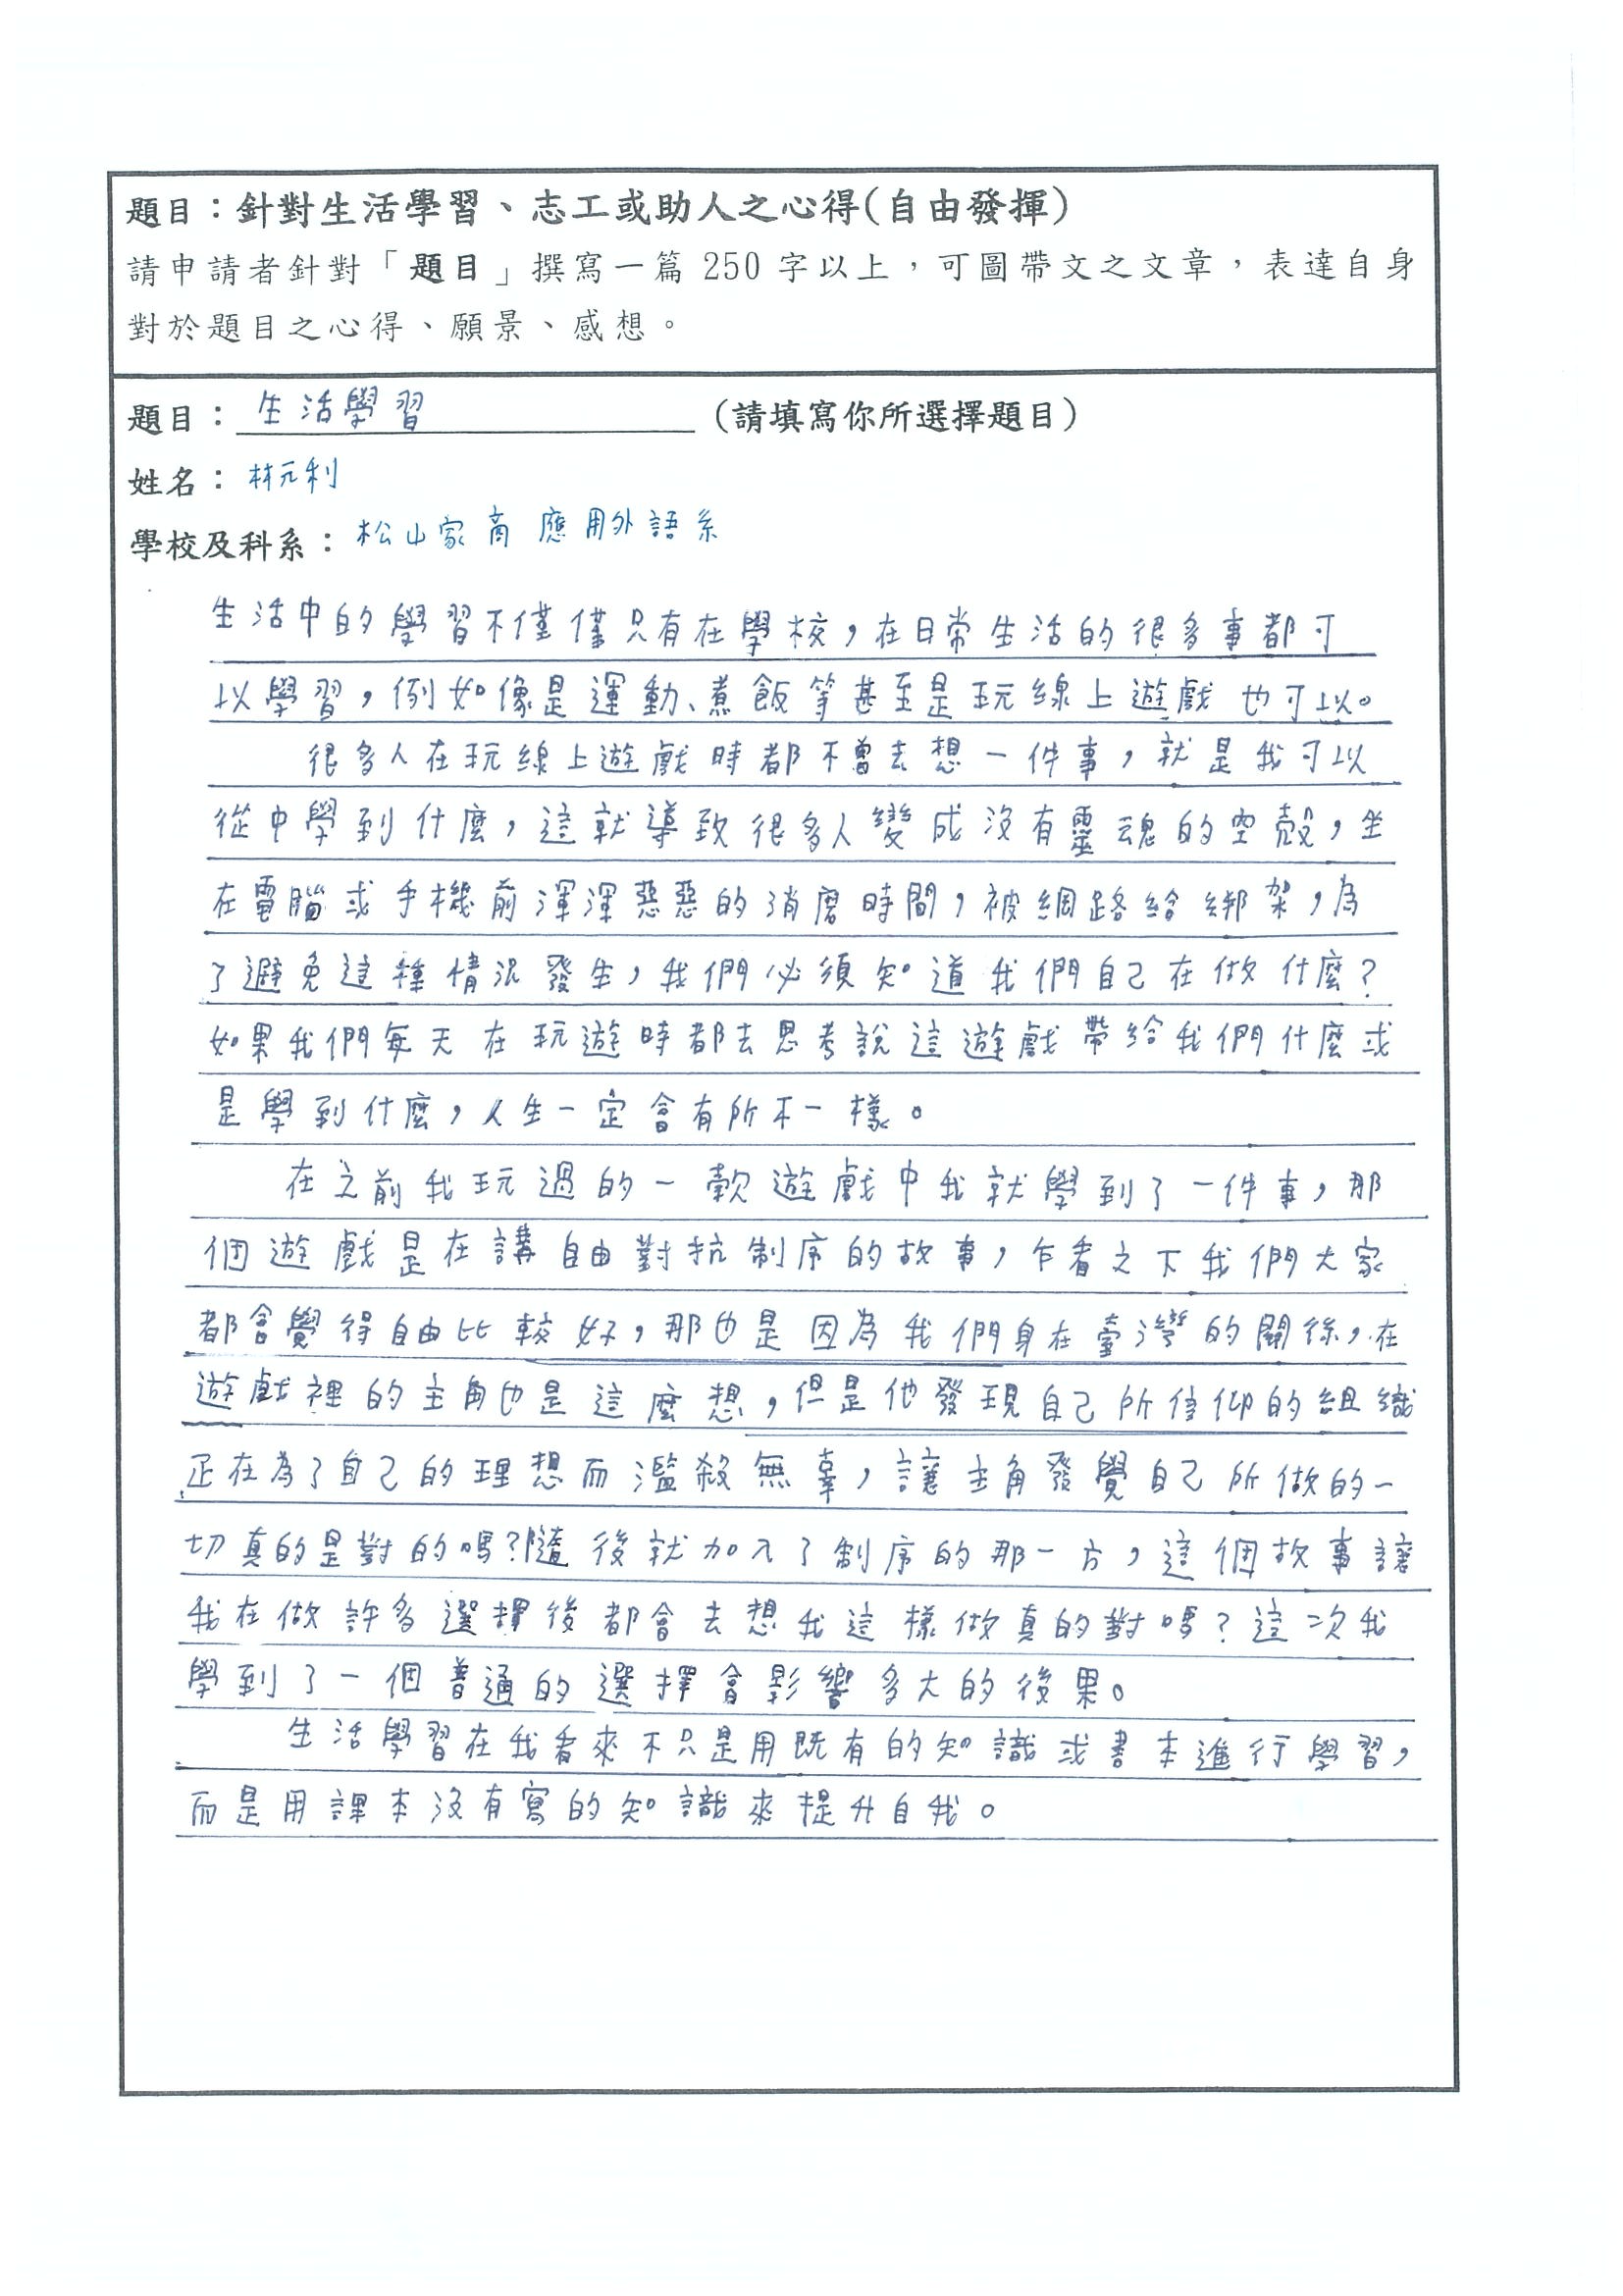 題目：針對生活學習、志工或助人之心得(自由發揮)
請申請者針對「題目」撰寫一篇 250 字以上，可圖帶文之文章，表達自身
對於題目之心得、願景、感想。
題目：生活學習 (請填寫你所選擇題目)
姓名：林元利
學校及科系：松山家商 應用外語系
生活中的學習不僅僅只有在學校，在日常生活的很多事都可
以學習，例如像是運動、煮飯等甚至是玩線上遊戲也可以。
很多人在玩線上遊戲時都不曾去想一件事，就是我可以
從中學到什麼，這就導致很多人變成沒有靈魂的空殼，坐
在電腦或手機前渾渾惡惡的消磨時間，被網路給綁架，為
了避免這種情況發生，我們必須知道我們自己在做什麼？
如果我們每天在玩遊時都去思考說這遊戲帶給我們什麼或
是學到什麼，人生一定會有所不一樣。
在之前我玩過的一款遊戲中我就學到了一件事，那
個遊戲是在講自由對抗制序的故事，乍看之下我們大家
都會覺得自由比較好，那也是因為我們身在臺灣的關係，在
遊戲裡的主角也是這麼想，但是他發現自己所信仰的組織
正在為了自己的理想而濫殺無辜，讓主角發覺自己所做的一
切真的是對的嗎？隨後就加入了制序的那一方，這個故事讓
我在做許多選擇後都會去想我這樣做真的對嗎？這次我
學到了一個普通的選擇會影響多大的後果。
生活學習在我看來不只是用既有的知識或書本進行學習，
而是用課本沒有寫的知識來提升自我。